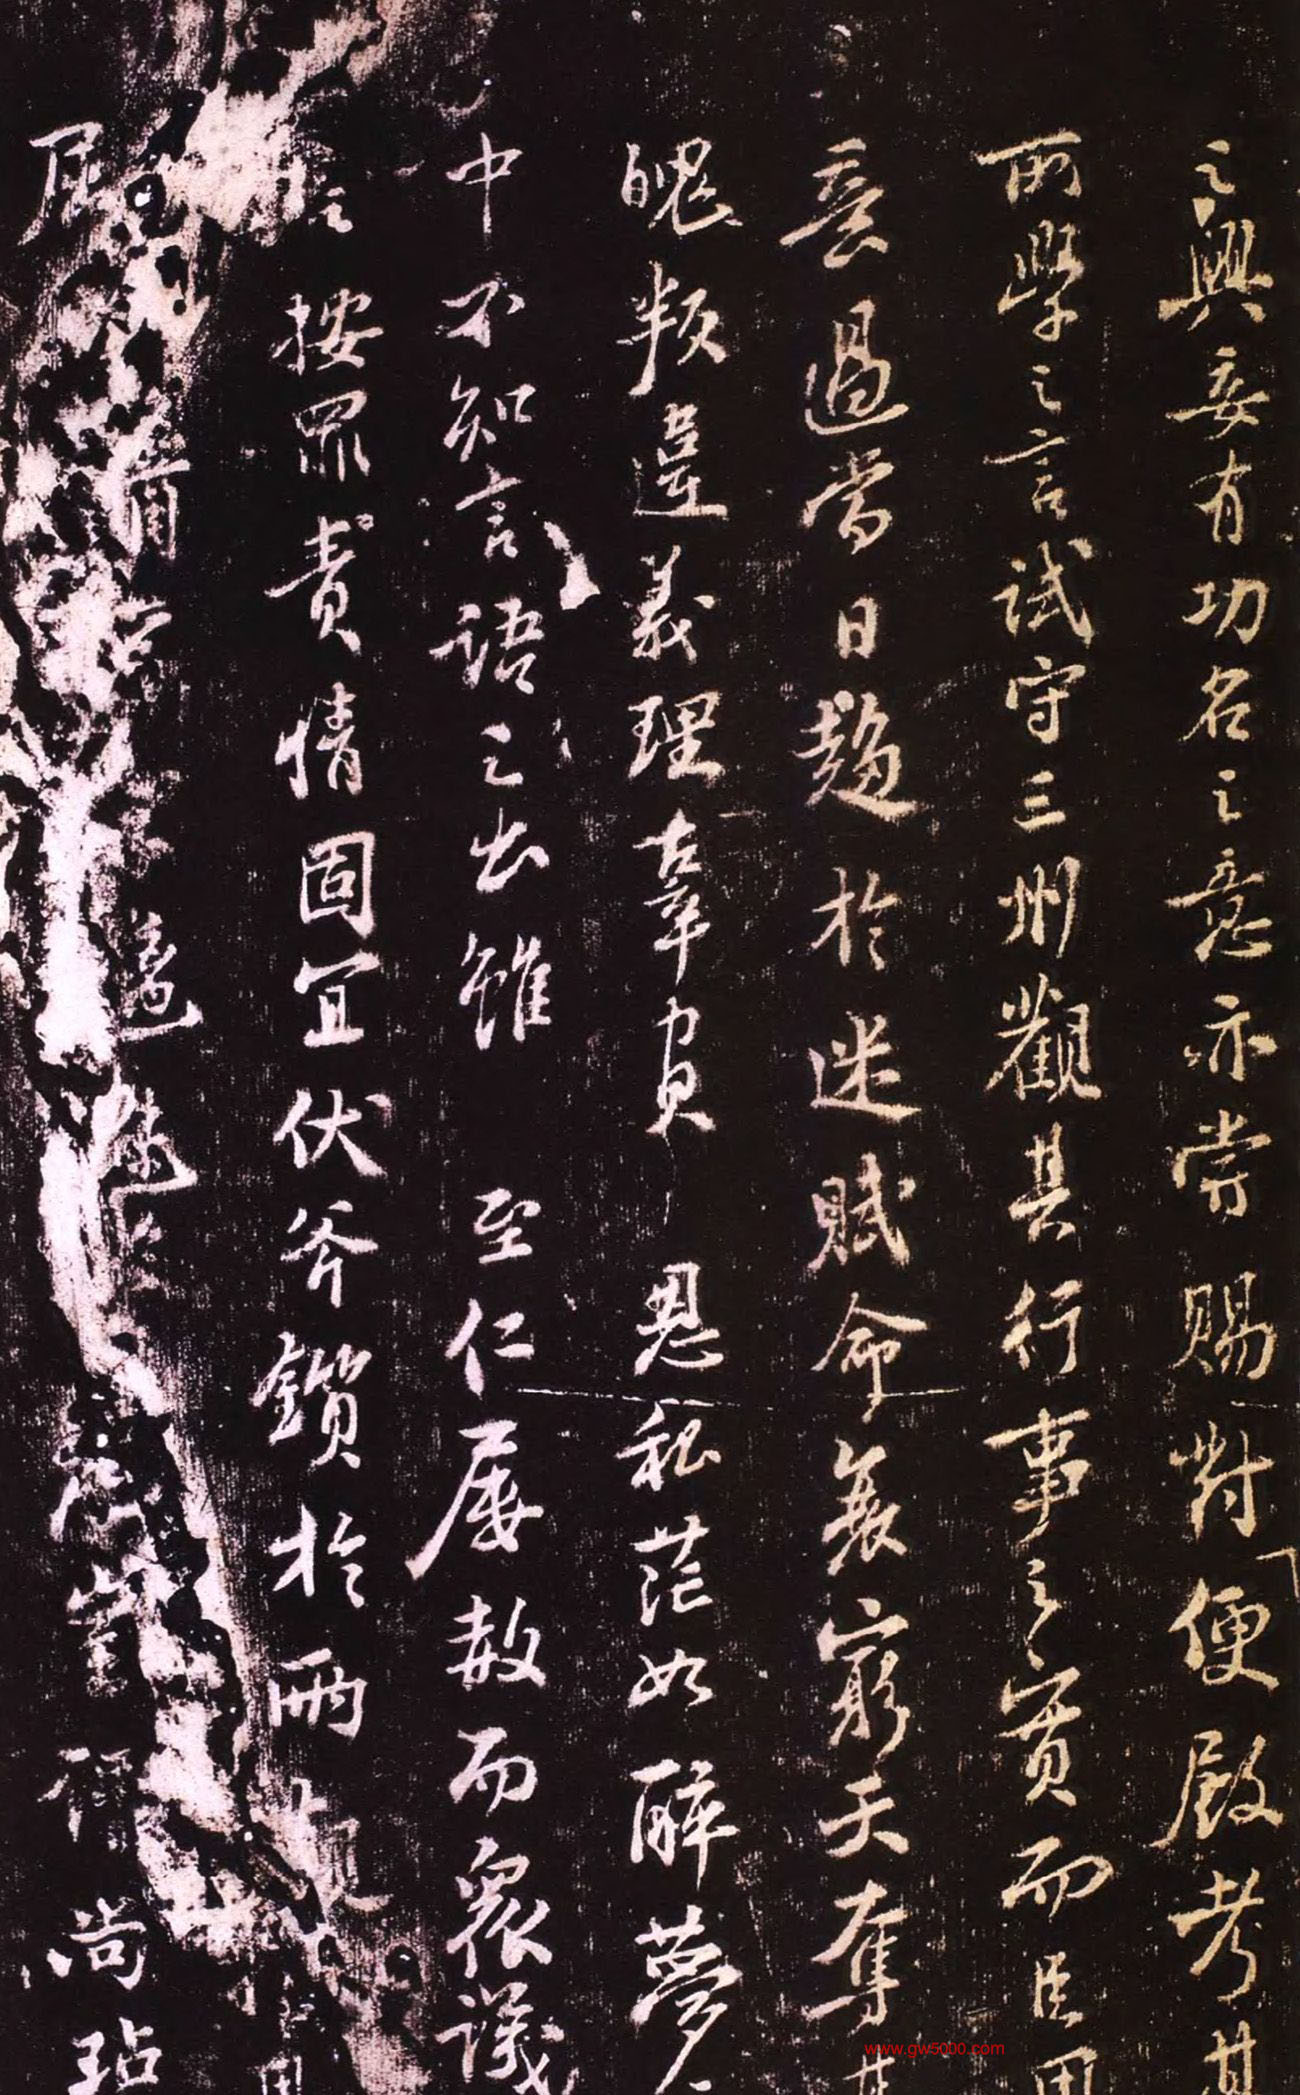 之興妄有功名之意亦嘗賜對便殿考其
所學之言試守三州觀其行事之實而臣用
意過當日趨於迷賦命衰窮天奪其
魄叛違義理辜負恩私茫如醉夢之
中不知言語之出雖至仁屢赦而衆議
按罪責情固宜伏斧鑕於兩觀恩
屈
尚玷
www.gw5000.com